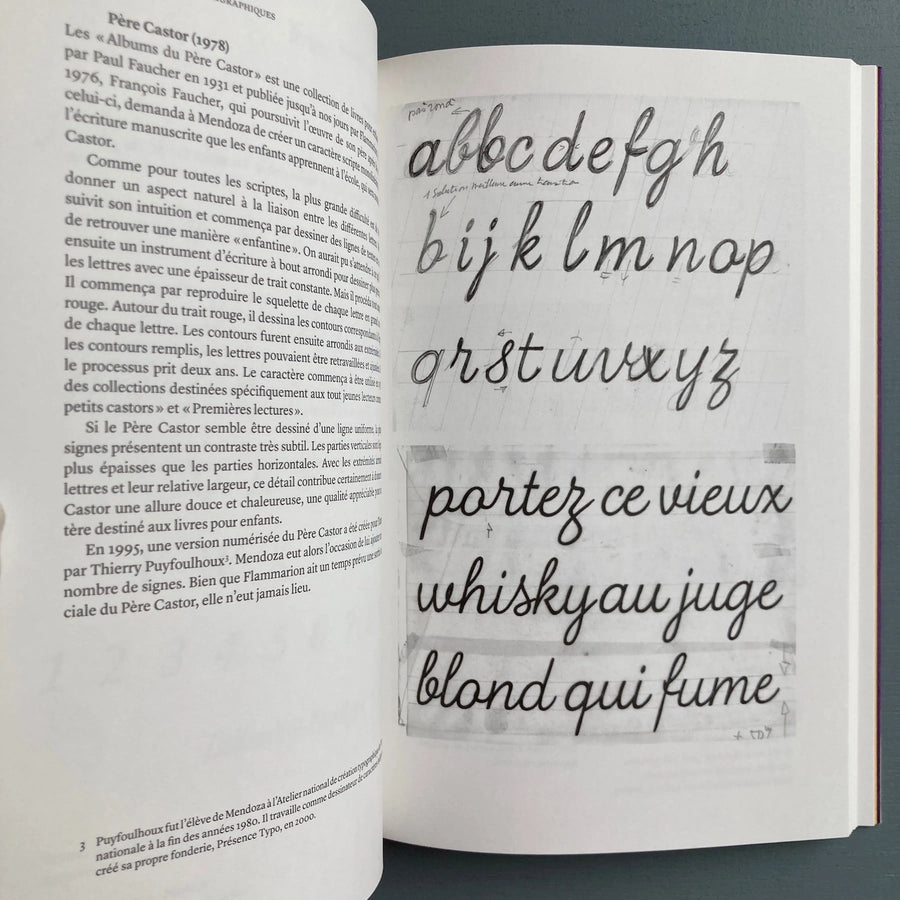 Père Castor (1978)
Les « Albums du Père Castor » est une collection de livres pour
par Paul Faucher en 1931 et publiée jusqu'à nos jours par
1976, François Faucher, qui poursuivit l'œuvre de son père après
celui-ci, demanda à Mendoza de créer un caractère scripte
l'écriture manuscrite que les enfants apprennent à l'école, qui
Castor.
Comme pour toutes les scriptes, la plus grande difficulté
donner un aspect naturel à la liaison entre les différentes
suivit son intuition et commença par dessiner des lignes de
de retrouver une manière « enfantine ». On aurait pu s'attendre à
ensuite un instrument d'écriture à bout arrondi pour dessiner
les lettres avec une épaisseur de trait constante. Mais il procéda
Il commença par reproduire le squelette de chaque lettre en
rouge. Autour du trait rouge, il dessina les contours
de chaque lettre. Les contours furent ensuite arrondis aux extrémités
les contours remplis, les lettres pouvaient être retravaillées et
le processus prit deux ans. Le caractère commença à être utilisé
des collections destinées spécifiquement aux tout jeunes lecteurs
petits castors » et « Premières lectures ».
Si le Père Castor semble être dessiné d'une ligne uniforme,
signes présentent un contraste très subtil. Les parties verticales sont
plus épaisses que les parties horizontales. Avec les extrémités
lettres et leur relative largeur, ce détail contribue certainement à
Castor une allure douce et chaleureuse, une qualité appréciable
tère destiné aux livres pour enfants.
En 1995, une version numérisée du Père Castor a été créée
par Thierry Puyfoulhoux³. Mendoza eut alors l'occasion de lui
nombre de signes. Bien que Flammarion ait un temps prévu une
ciale du Père Castor, elle n'eut jamais lieu.
3 Puyfoulhoux fut l'élève de Mendoza à l'Atelier national de création typographique
nationale à la fin des années 1980. Il travaille comme dessinateur de caractères
créé sa propre fonderie, Présence Typo, en 2000.
pas rond
abbcdefgh
1 Solution meilleure
bijklmnop
qrstuvxyz
portez ce vieux
whisky au juge
blond qui fume